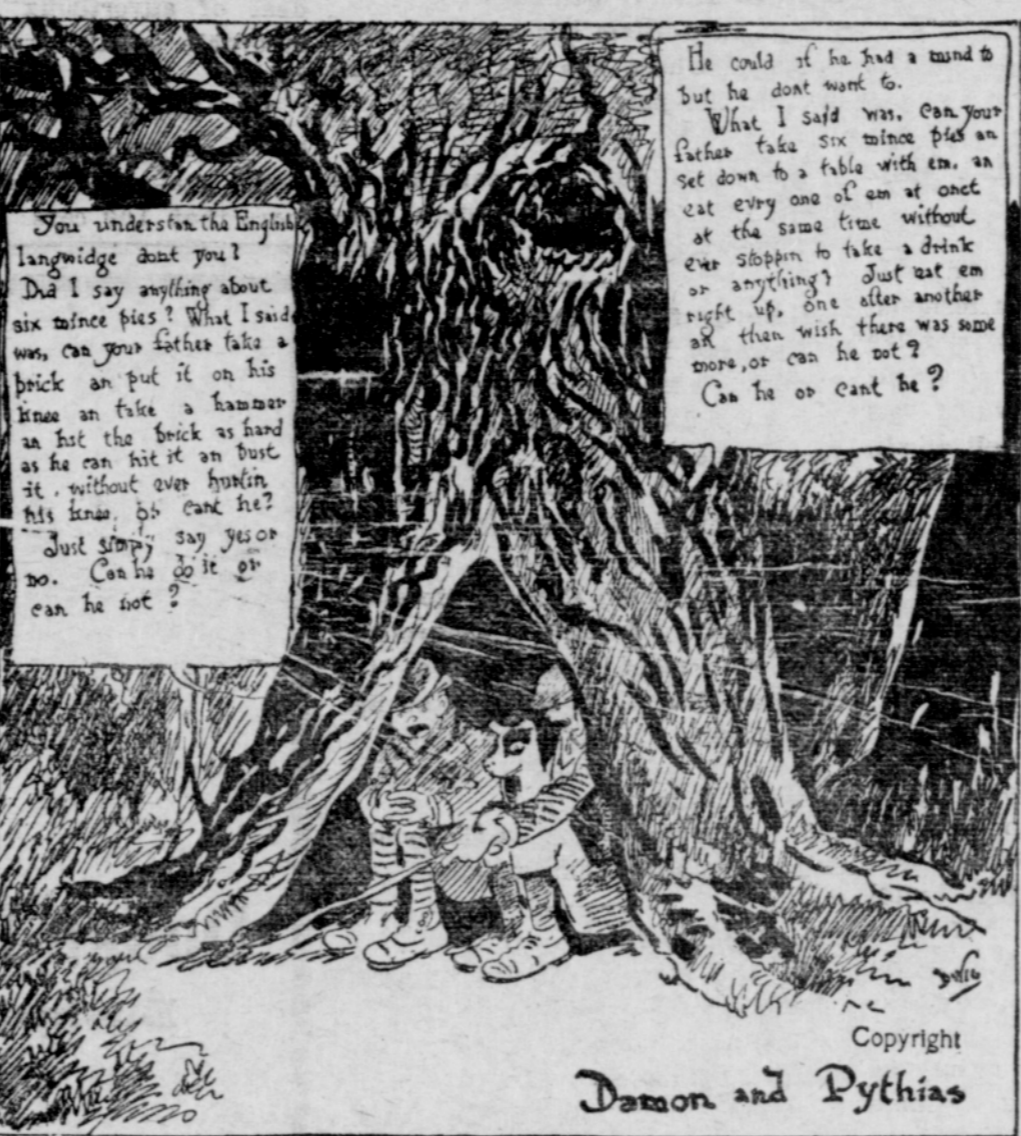 You understan the English
langwidge dont you?
Did I say anything about
six mince pies? What I said
was, can your father take a
brick an put it on his
knee an take a hammer
an hit the brick as hard
as he can hit it an bust
it, without ever hurtin
his knee, or cant he?
Just simply say yes or
no. Can he do it or
can he not?
He could if he had a mind to
but he dont want to.
What I said was, can your
father take six mince pies an
set down to a table with em, an
eat evry one of em at onct
at the same time without
ever stoppin to take a drink
or anything? Just eat em
right up, one after another
an then wish there was some
more, or can he not?
Can he or cant he?
Copyright
Damon and Pythias